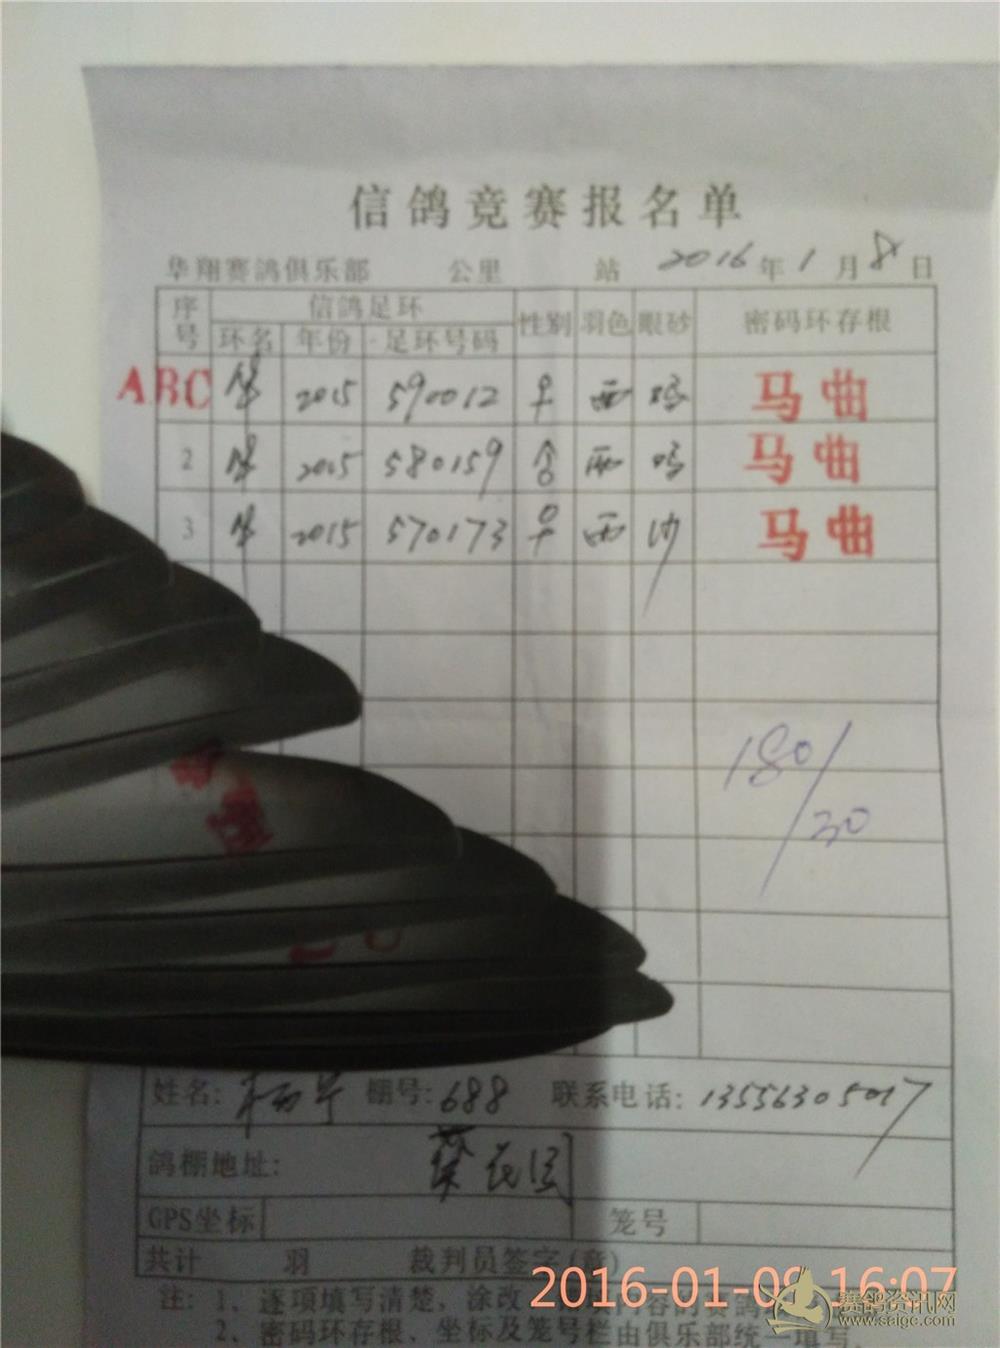 信鸽竞赛报名单
华翔赛鸽俱乐部 公里 站 2016年1月8日
序号 信鸽足环 性别 羽色 眼砂 密码环存根
环名 年份 足环号码
ABC 2015 590012 雨 鸡 马曲
2 2015 580159 合 雨 鸡 马曲
3 2015 570173 早 雨 沙 马曲
180/30
姓名: 棚号:688 联系电话:13556305017
鸽棚地址:
GPS坐标 笼号
共计 羽 裁判员签字(章)
2016-01-08 16:07
注: 1、逐项填写清楚,涂改
2、密码环存根、坐标及笼号栏由俱乐部统一填写.
赛鸽资讯网
www.saigc.com